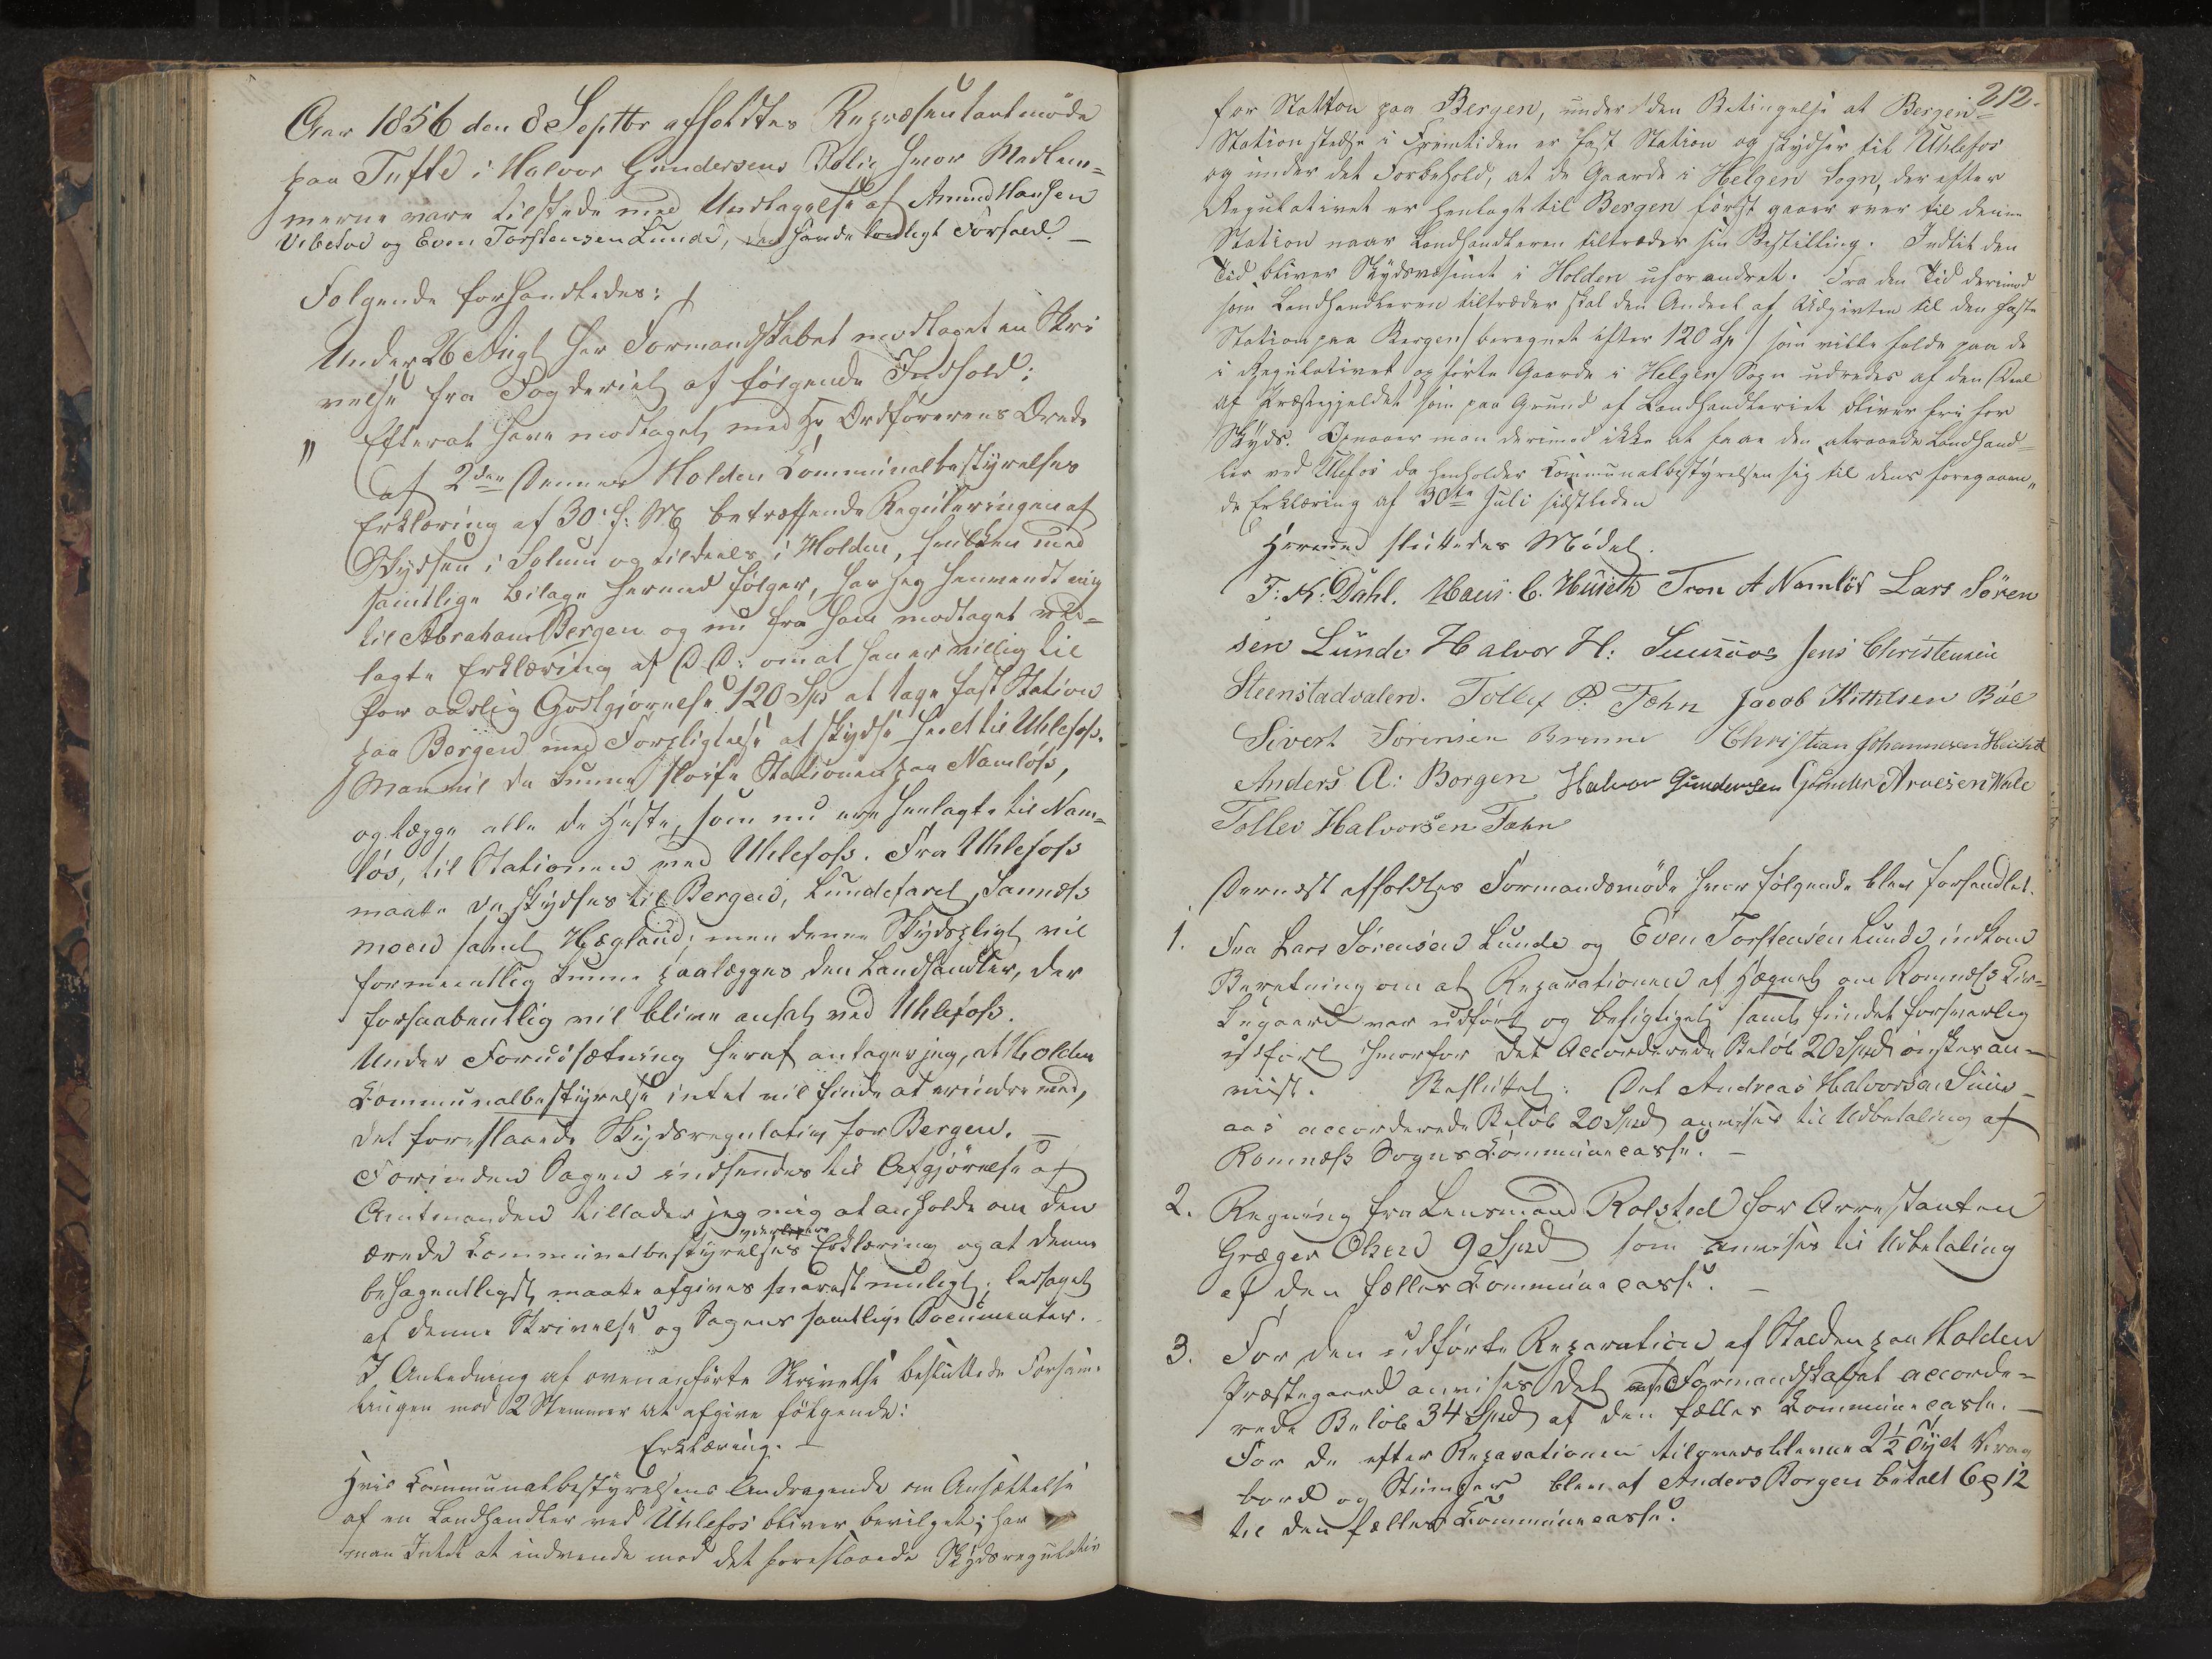 Aar 1856 den 8 Septbr afholdtes Repræsentantmøde
paa Tufte i Halvor Gundersens Bolig hvor Medlem-
merne vare tilstede med Undtagelse af Amund Hansen
Vibetoe og Even Torstensen Lunde, havde lovligt Forfald. –
Følgende forhandledes:
Under 26 Augt har Formandskabet modtaget en Skri
velse fra Fogderiet af følgende Indhold:
" Efterat have modtaget med Hr Ordførerens Brev
af 2den dennes Holden Communalbestyrelses
Erklæring af 30 f: M. betræffende Reguleringen af
Skydsen i Solum og tildeels i Holden, hvilken med
samtlige Bilage hermed følger, har jeg henvendt mig
til Abraham Bergen og nu fra ham modtaget ved-
lagte Erklæring af D. D. om at han er villig til
for aarlig Godtgjørelse 120 Spd at tage fast Station
paa Bergen med Forpligtelse at skydse til Uhlefoss.
Man vil da kunne sløife Stationen paa Namløs,
og lægge alle de Heste, som nu ere henlagte til Nam-
løs, til Stationen ved Uhlefoss. Fra Uhlefoss
maatte da skydses til Bergen, Lundefaret, Sannæss
moen samt Hægland; men denne Skydspligt vil
formeentlig kunne paalægges den Landhandler, der
forhaabentlig vil blive ansat ved Uhlefoss.
Under Forudsætning heraf antager jeg, at Holden
Communalbestyrelse intet vil finde at erindre mod,
det foreslaaede Skydsregulativ for Bergen. –
Forinden Sagen indsendes til Afgjørelse af
Amtmanden tillader jeg mig at anholde om den
ærede Communalbestyrelses yderligere Erklæring og at denne
behageligst maatte afgives snarest muligt, ledsaget
af denne Skrivelse og Sagens samtlige Documenter.
I Anledning af ovenanførte Skrivelse besluttede Forsam-
lingen mod 2 Stemmer at afgive følgende:
Erklæring. –
Hvis Communalbestyrelsens Andragende om Ansættelse
af en Landhandler ved Uhlefos bliver bevilget; har
man Intet at indvende mod det foreslaaede Skydsregulativ
212.
for Station paa Bergen, under den Betingelse at Bergen
Station stedse i Fremtiden er fast Station og skydser til Uhlefos
og under det Forbehold, at de Gaarde i Helgen Sogn, der efter
Regulativet er henlagt til Bergen først gaaer over til denne
Station naar Landhandleren tiltræder sin Bestilling. Indtil den
Tid bliver Skydsvæsenet i Holden uforandret. Fra den Tid derimod
som Landhandleren tiltræder skal den Andeel af Udgivten til den faste
Station paa Bergen / beregnet efter 120 Spd / som vilde falde paa de
i Regulativet opførte Gaarde i Helgen Sogn udredes af den Deel
af Præstegjeldet som paa Grund af Landhandleriet bliver fri for
Skyds. Opnaaer man derimod ikke at faae den attraaede Landhand-
ler ved Ulefos da henholder Communalbestyrelsen sig til dens foregaaen-
de Erklæring af 30te Juli sidstleden
Hermed sluttedes Mødet.
T. K. Dahl. Hans C. Huseth Tron A Namløs Lars Sören
sen Lunde Halvor H: Jens Christensen
Steenstadvalen. Tollef P. Fæhn Jacob Kittilsen Böe
Sivert Sörensen Brenne Christian Johannesen
Anders A: Borgen Halvor Gundersen Gunder Aroesen
Tollev Halvorsen Fæhn
Dernæst afholdtes Formandsmøde hvor følgende blev forhandlet.
1. Fra Lars Sørensen Lunde og Even Torstensen Lunde indkom
Beretning om at Reparationen af Hægnet om Romnæss Kir-
kegaard var udført og besigtiget samt fundet forsvarlig
udført hvorfor det Accorderede Beløb 20 Spd ønskes an-
viist. Besluttet: Det Andreas Halvorsen
aas accorderede Beløb 20 Spd anvises til Udbetaling af
Romnæss Sogns Communecasse. –
2. Regning fra Lensmand Rolsted for Arrestanten
Græger Oterd 9 Spd som anvises til Udbetaling
af den fælles Communecasse. –
3. For den udførte Reparation af Stalden paa Holden
Præstegaard anvises det af Formandskabet accorde-
rede Beløb 34 Spd af den fælles Communecasse. –
For de efter Reparationen tilovers blevne 2½ Tylt Vrag
bord og Stumper blev af Anders Borgen betalt 6 ß 12
til den fælles Communecasse.